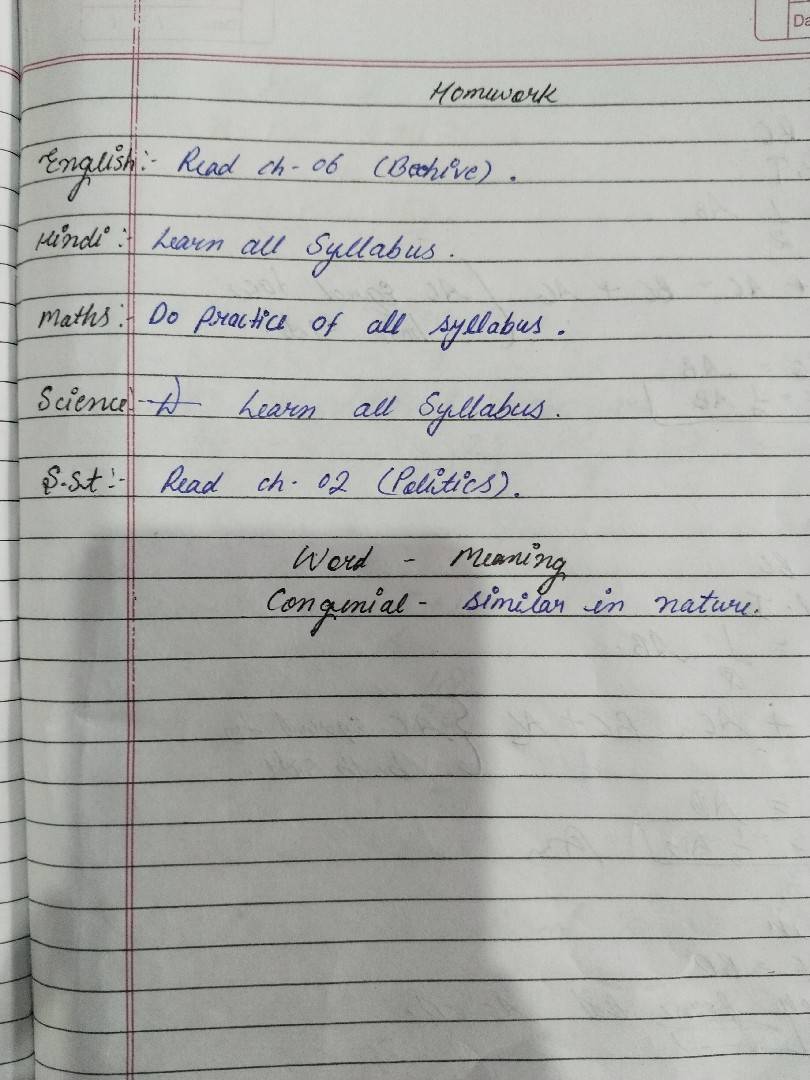 Da
Homework
English:- Read ch-06 (Beehive).
Hindi:- Learn all Syllabus.
Maths:- Do Practice of all syllabus.
Science:- Learn all Syllabus.
S.St:- Read ch-02 (Politics).
Word - Meaning
Congenial - similar in nature.